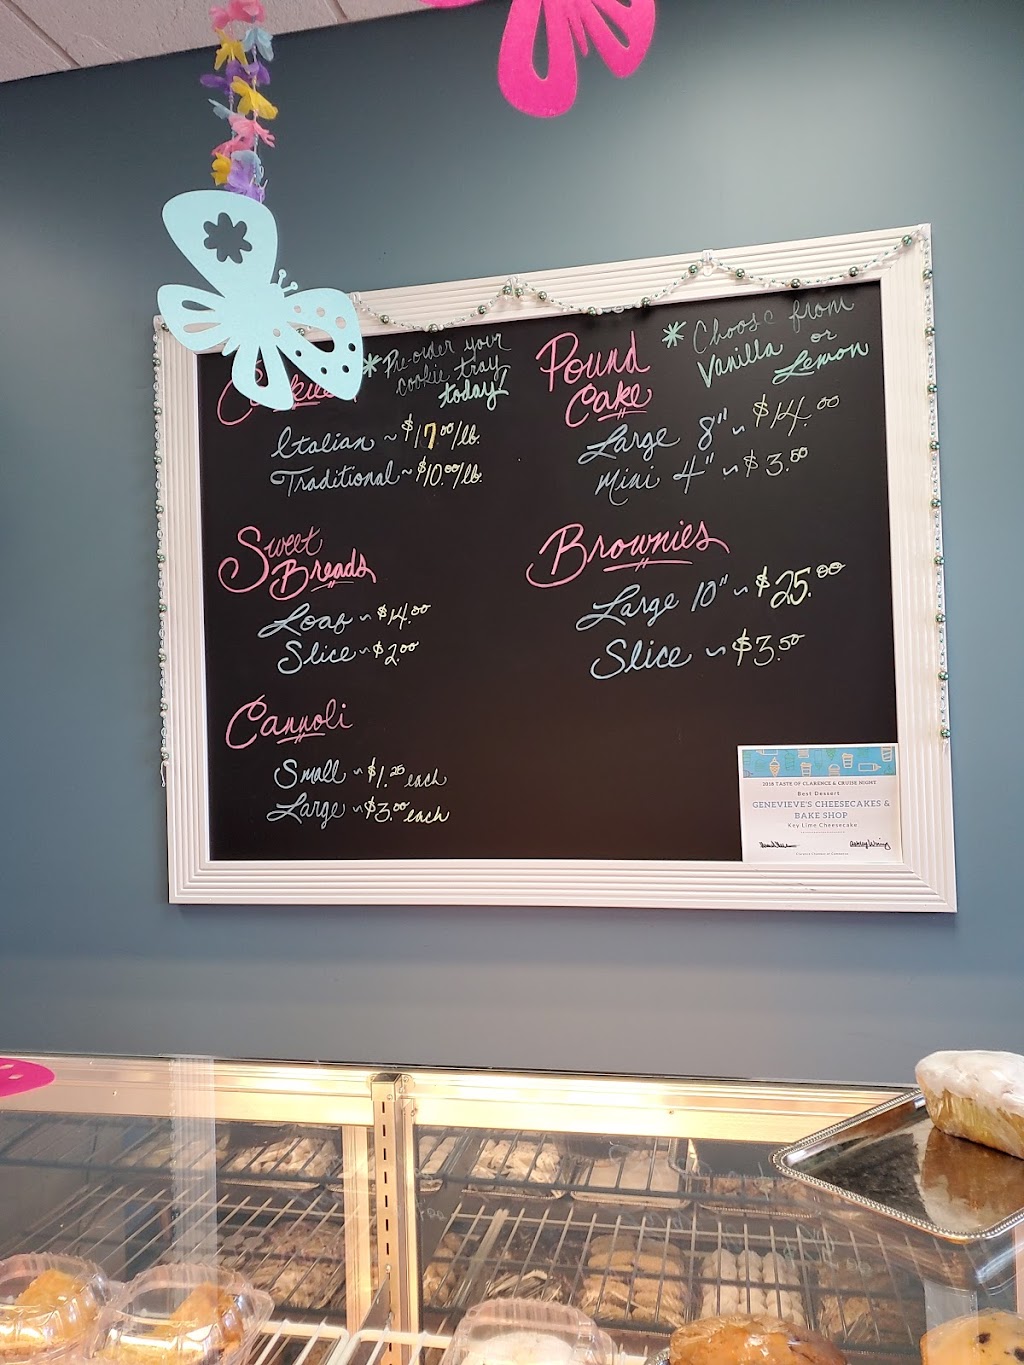 Cookies
*Pre-order your
cookie tray
today!
Italian ~ $17.00/lb.
Traditional ~ $10.00/lb.
Sweet
Breads
Loaf ~ $14.00
Slice ~ $2.00
Cannoli
Small ~ $1.25 each
Large ~ $3.00 each
Pound
Cake
* Choose from
Vanilla or
Lemon
Large 8" ~ $14.00
Mini 4" ~ $3.50
Brownies
Large 10" ~ $25.00
Slice ~ $3.50
2018 TASTE OF CLARENCE & CRUISE NIGHT
Best Dessert
GENEVIEVE'S CHEESECAKES &
BAKE SHOP
Key Lime Cheesecake
Clarence Chamber of Commerce